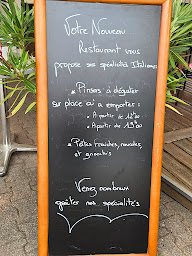 Votre Nouveau
Restaurant vous
propose ses spécialités Italiennes
* Pinsas à déguster
sur place ou a emporter :
* A partir de 12h00
* A partir de 19h00
* Pâtes fraiches, ravioles,
et gnocchis
Venez nombreux
goûter nos spécialités